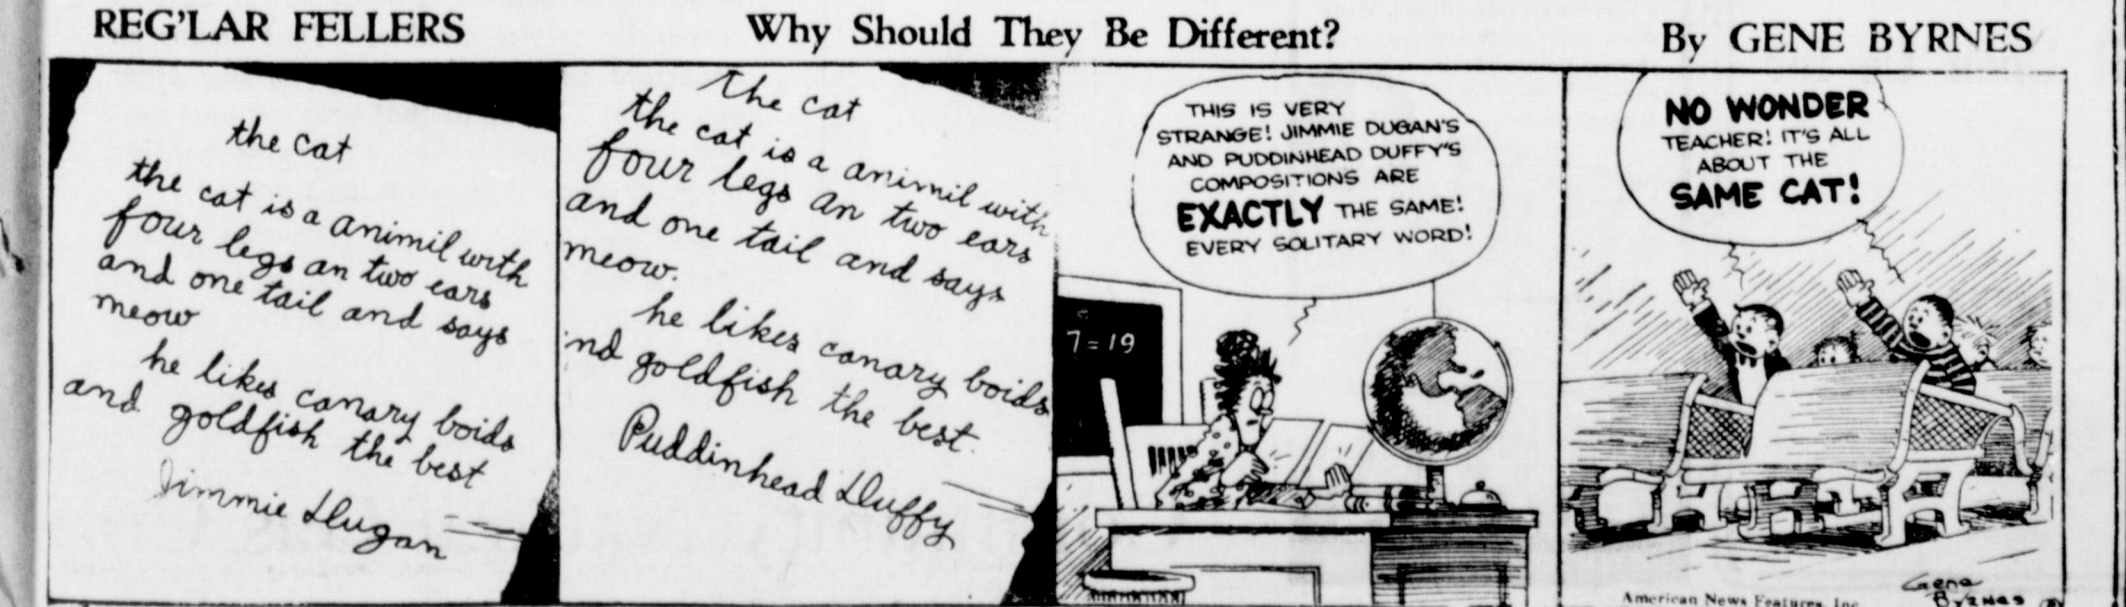 REG'LAR FELLERS
Why Should They Be Different?
By GENE BYRNES
the cat
the cat is a animil with
four legs an two ears
and one tail and says
meow
he likes canary boids
and goldfish the best
Jimmie Dugan
The cat
the cat is a animil with
four legs an two ears
and one tail and says
meow.
he likes canary boids
nd goldfish the best.
Puddinhead Duffy
THIS IS VERY
STRANGE! JIMMIE DUGAN'S
AND PUDDINHEAD DUFFY'S
COMPOSITIONS ARE
EXACTLY THE SAME!
EVERY SOLITARY WORD!
7=19
NO WONDER
TEACHER! IT'S ALL
ABOUT THE
SAME CAT!
Gene
Byrnes
American News Features, Inc